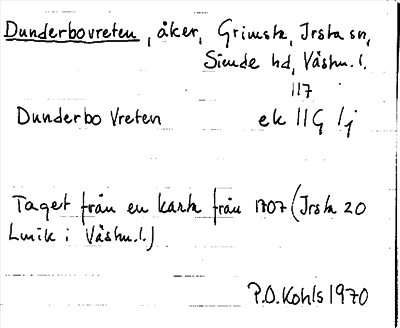 Dunderbovreten, åker, Grimsta, Irsta sn,
Siende hd, Västm.l.
117
Dunderbo Vreten ek 11G 1j
Taget från en karta från 1707 (Irsta 20
Lmik i Västm.l.)
P.O. Kohls 1970